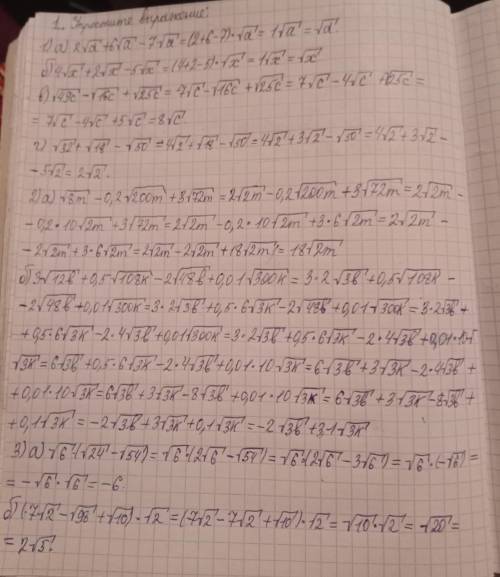 1. Упростите выражение:
1) а) 2√a + 6√a - 7√a = (2+6-7)·√a = 1√a = √a.
б) 4√x + 2√x - 5√x = (4+2-5)·√x = 1√x = √x
в) √49c - √16c + √25c = 7√c - √16c + √25c = 7√c - 4√c + √25c =
= 7√c - 4√c + 5√c = 8√c
г) √32 + √18 - √50 = 4√2 + √18 - √50 = 4√2 + 3√2 - √50 = 4√2 + 3√2 -
- 5√2 = 2√2.
2) а) √8m - 0,2√200m + 3√72m = 2√2m - 0,2√200m + 3√72m = 2√2m -
- 0,2·10√2m + 3√72m = 2√2m - 0,2·10√2m + 3·6√2m = 2√2m -
- 2√2m + 3·6√2m = 2√2m - 2√2m + 18√2m = 18√2m
б) 3√12в + 0,5√108к - 2√48в + 0,01√300к = 3·2√3в + 0,5√108к -
- 2√48в + 0,01√300к = 3·2√3в + 0,5·6√3к - 2√48в + 0,01√300к = 3·2√3в +
+ 0,5·6√3к - 2·4√3в + 0,01√300к = 3·2√3в + 0,5·6√3к - 2·4√3в + 0,01·10
√3к = 6√3в + 0,5·6√3к - 2·4√3в + 0,01·10√3к = 6√3в + 3√3к - 2·4√3в +
+ 0,01·10√3к = 6√3в + 3√3к - 8√3в + 0,01·10√3к = 6√3в + 3√3к - 8√3в +
+ 0,1√3к = -2√3в + 3√3к + 0,1√3к = -2√3в + 3,1√3к
3) а) √6(√24 - √54) = √6(2√6 - √54) = √6(2√6 - 3√6) = √6·(-√6) =
= -√6·√6 = -6.
б) (7√2 - √98 + √10)·√2 = (7√2 - 7√2 + √10)·√2 = √10·√2 = √20 =
= 2√5.